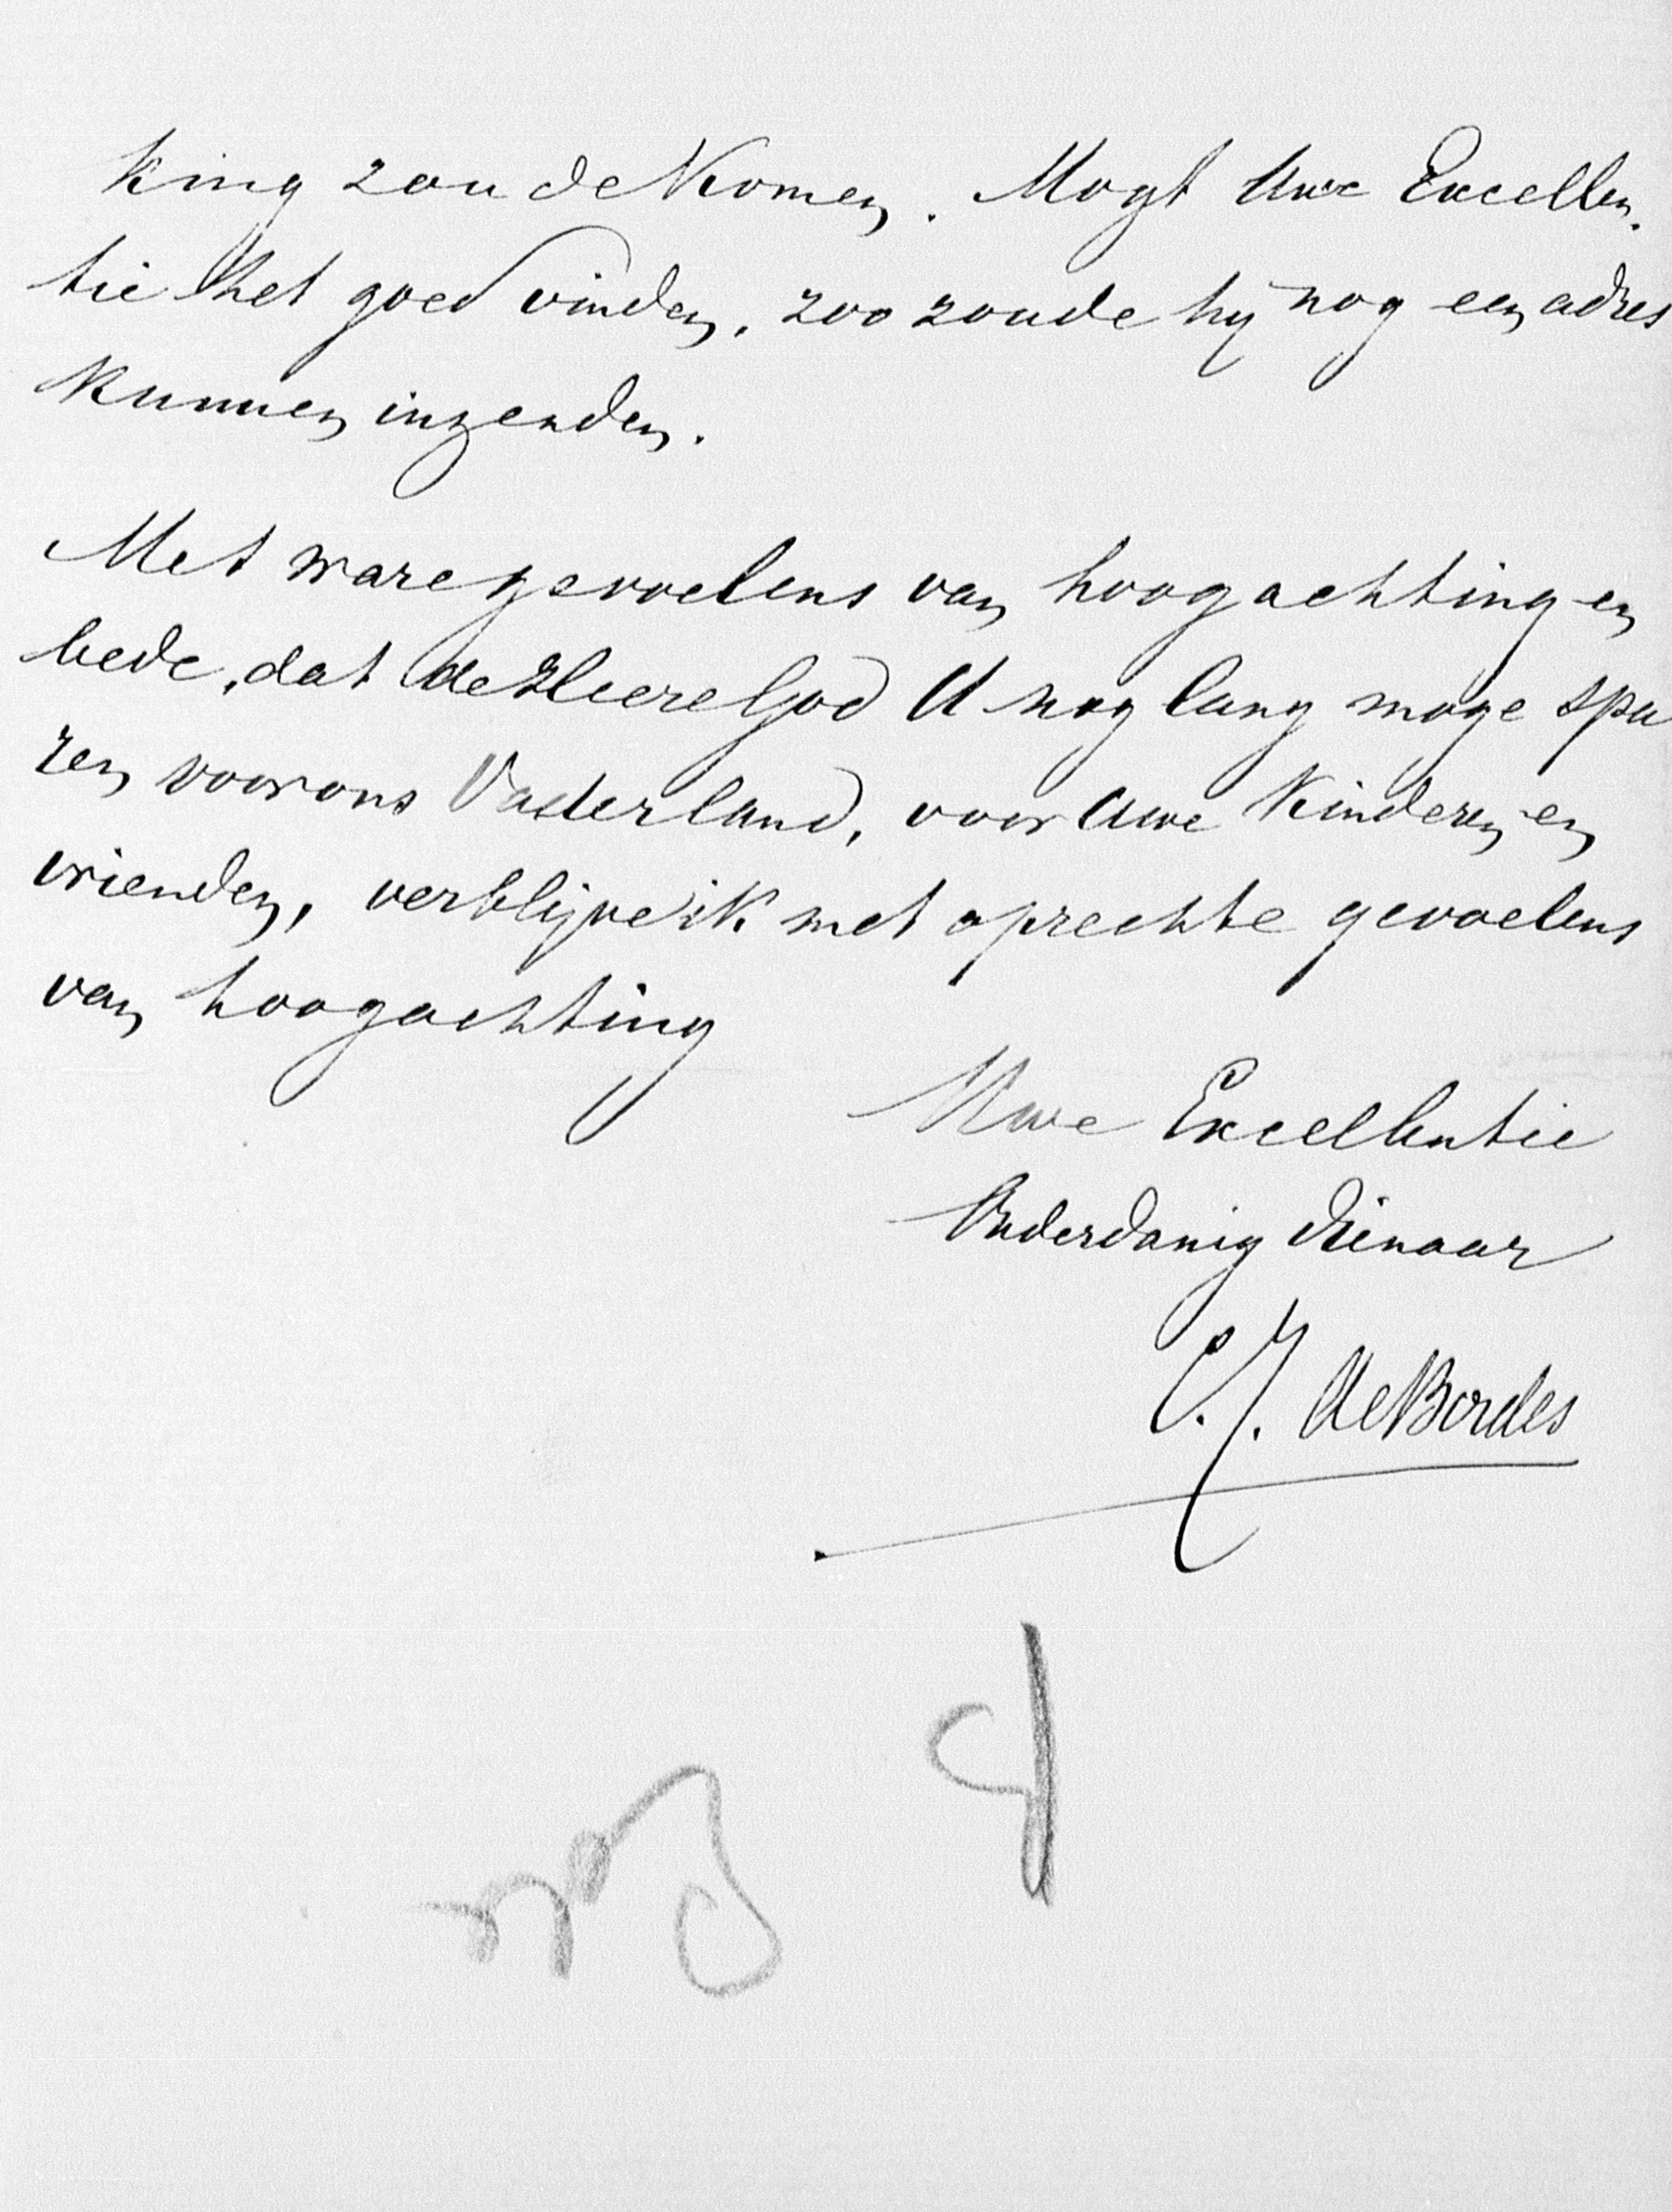 king zoude komen. Mogt Uwe Excellen.
tie het goed vinden, zoo zoude hij nog een adres
kunnen inzenden.
Met ware gevoelens van hoogachting en
bede, dat de Heere God U nog lang moge spa
ren voor ons Vaderland, voor Uwe kinderen en
vrienden, verblijve ik met oprechte gevoelens
van hoogachting
Uwe Excellentie
Onderdanig dienaar
C. J. de Bordes